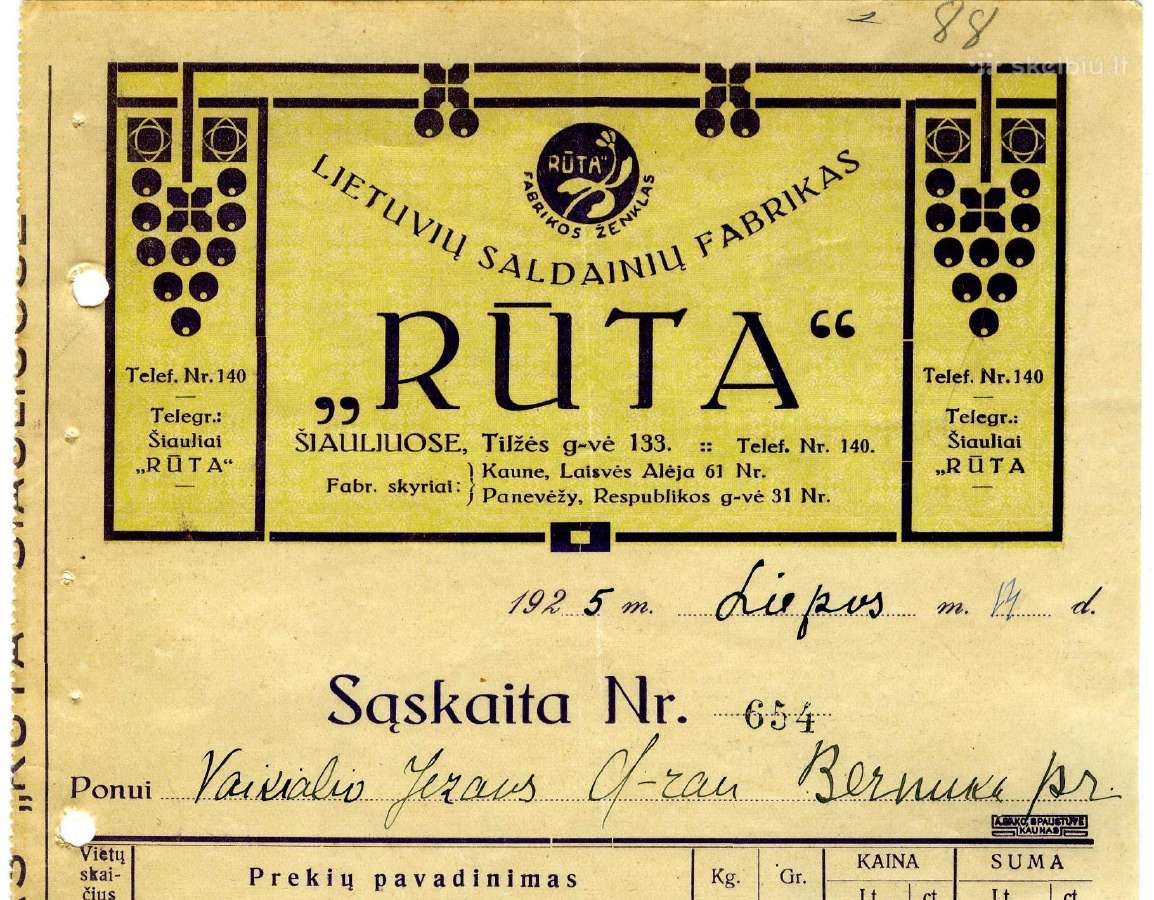 88
skelbiu.lt
„RŪTA“
FABRIKOS ŽENKLAS
LIETUVIŲ SALDAINIŲ FABRIKAS
„RŪTA“
ŠIAULIUOSE, Tilžės g-vė 133. :: Telef. Nr. 140.
Fabr. skyriai: Kaune, Laisvės Alėja 61 Nr.
Panevėžy, Respublikos g-vė 31 Nr.
Telef. Nr. 140
Telegr.:
Šiauliai
„RŪTA“
Telef. Nr. 140
Telegr.:
Šiauliai
„RŪTA
1925 m. Liepos m. d.
Sąskaita Nr. 654
Ponui Vaikialio Jezaus pr.
A. BAKO, SPAUSTUVĖ
KAUNAS
Vietų skai-čius
Prekių pavadinimas
Kg.
Gr.
KAINA
SUMA
Lt.
ct.
Lt.
ct.
„RŪTA“ ŠIAULIUOSE